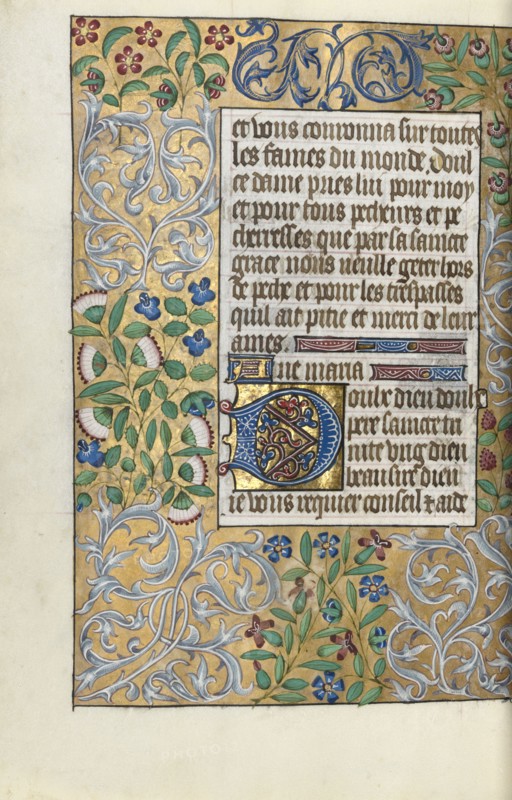 et vous couronna sur toutes
les fames du monde. doul
ce dame pries lui pour moy
et pour tous pecheurs et pe
cheresses que par sa saincte
grace nous vueille geter hors
de peche et pour les trespasses
quil ait pitie et merci de leur
ames.
Aue maria
Doulx dieu doulx
pere saincte tri
nite vng dieu
beau sire dieu
ie vous requier conseil & aide